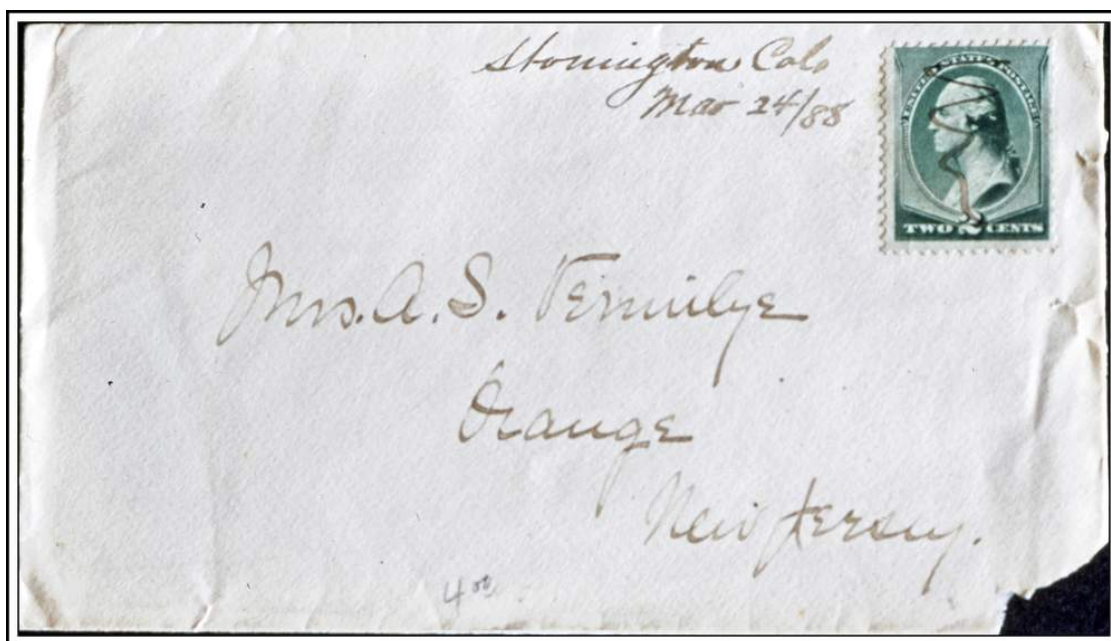 Stonington Colo
Mar 24/88
UNITED STATES POSTAGE
TWO 2 CENTS
Mrs. A. S. Vermilye
Orange
New Jersey.
4 00